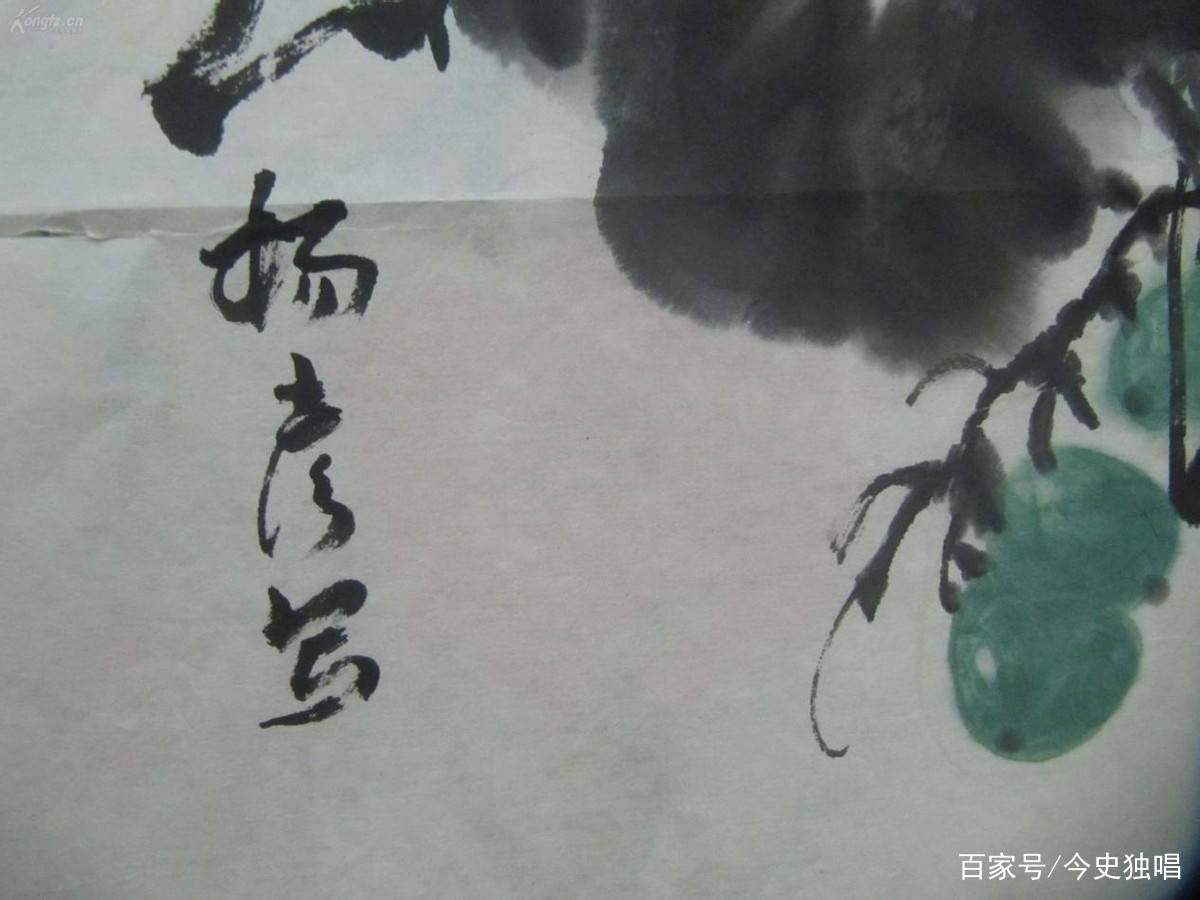 Kongfz.cn
杨彦写
百家号/今史独唱